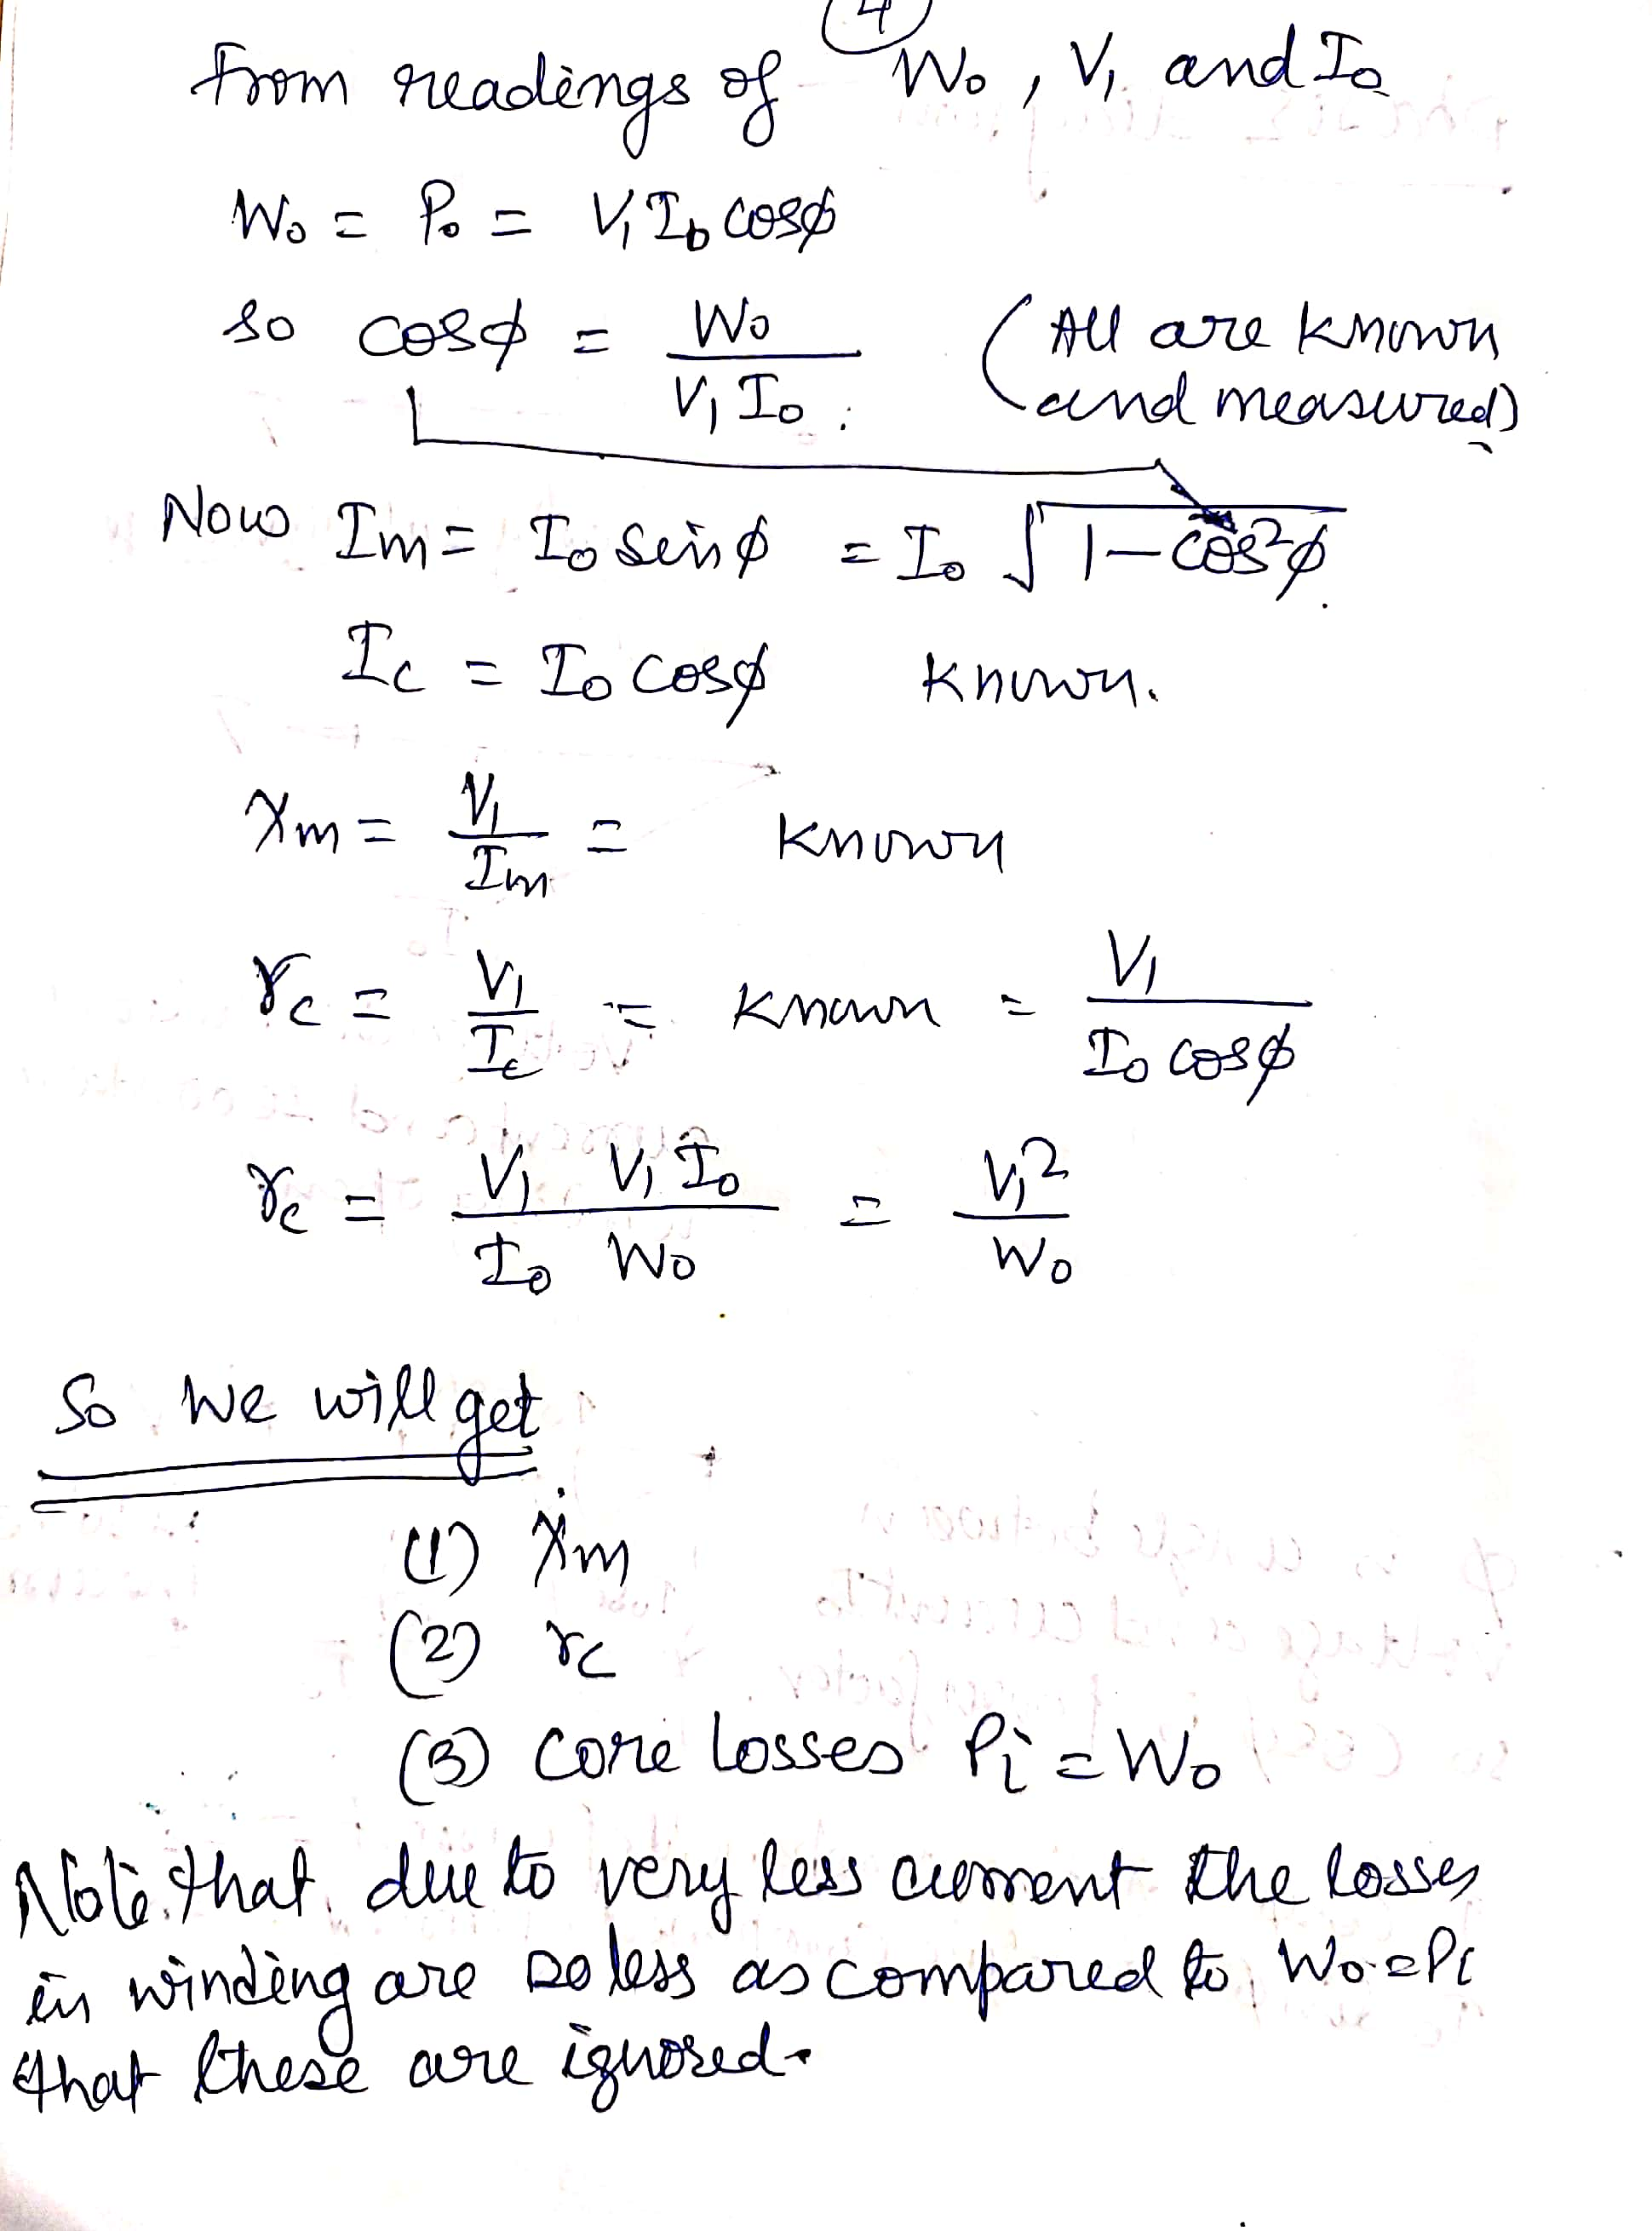 4
From readings of W₀, V₁ and I₀
W₀ = P₀ = V₁ I₀ cosϕ
so cosϕ = W₀ / V₁ I₀ (All are known
and measured)
Now Im = I₀ sinϕ = I₀ √(1 − cos²ϕ)
Ic = I₀ cosϕ known.
Xm = V₁ / Im = known
rc = V₁ / Ic = known = V₁ / I₀ cosϕ
rc = V₁ V₁ I₀ / I₀ W₀ = V₁² / W₀
So we will get
(1) Xm
(2) rc
(3) core losses Pi = W₀
Note that due to very less current the losses
in winding are so less as compared to W₀ = Pi
that these are ignored.